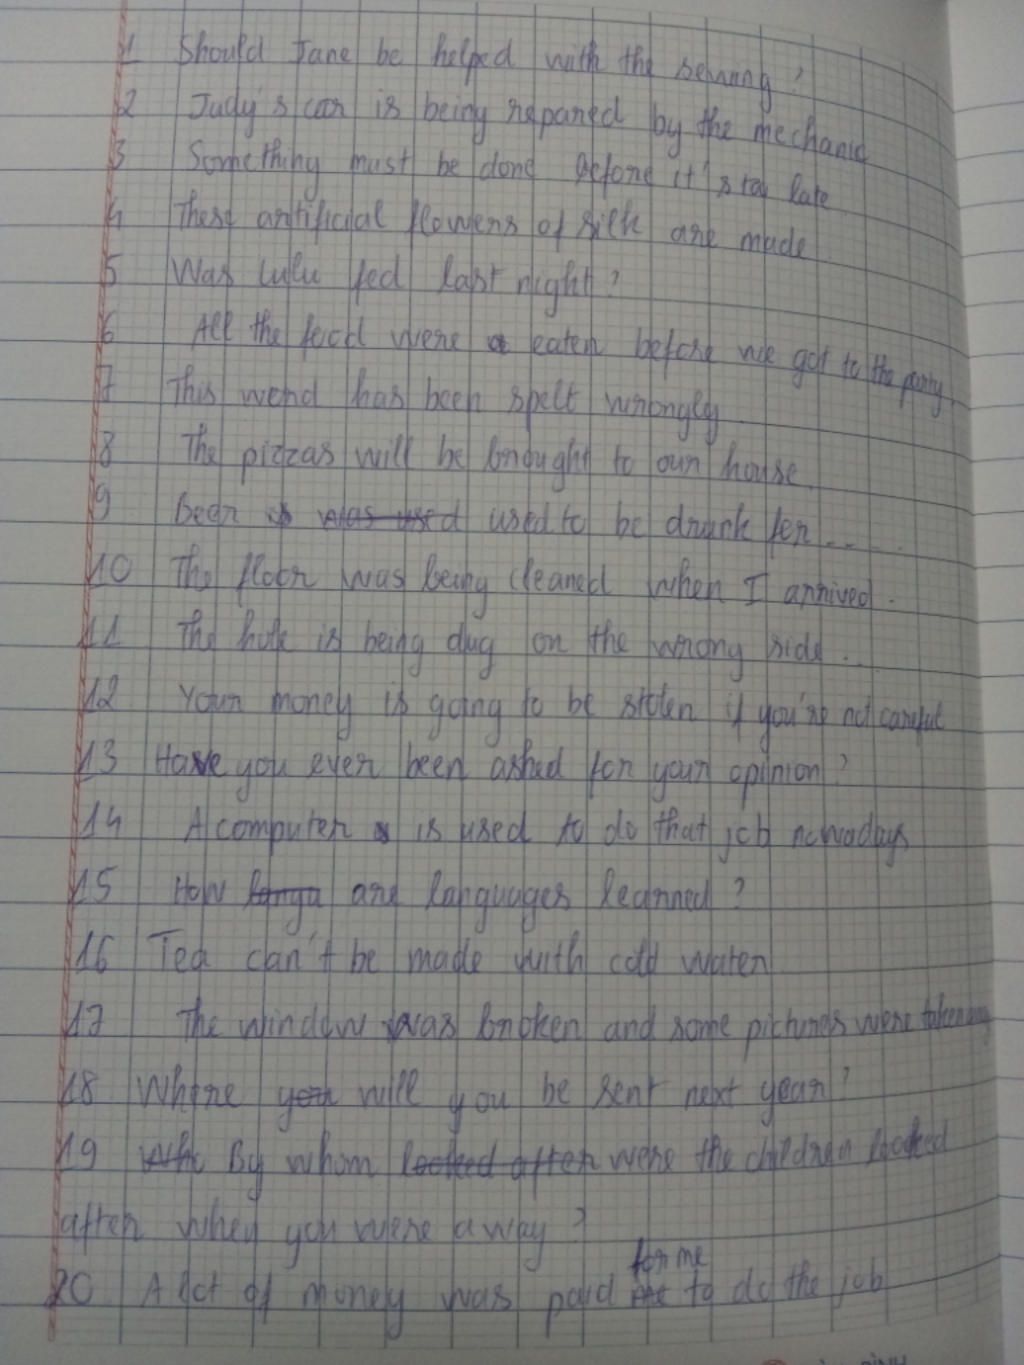 1 Should Jane be helped with the sewing ?
2 Judy's car is being repared by the mechanic
3 Something must be done before it's too late
4 These artificial flowers of silk are made
5 Was Lulu fed last night ?
6 All the food were eaten before we got to the party
7 This word has been spelt wrongly
8 The pizzas will be brought to our house.
9 Beer was used used to be drunk for .....
10 The floor was being cleaned when I arrived.
11 The hole is being dug on the wrong side...
12 Your money is going to be stolen if you're not careful
13 Have you ever been asked for your opinion ?
14 A computer is used to do that job nowadays
15 How langa are languages learned ?
16 Tea can't be made with cold water
17 The window was broken and some pictures were taken
18 Where you will you be sent next year ?
19 By whom looked after were the children looked
after when you were away ?
for me
20 A lot of money was paid to do the job